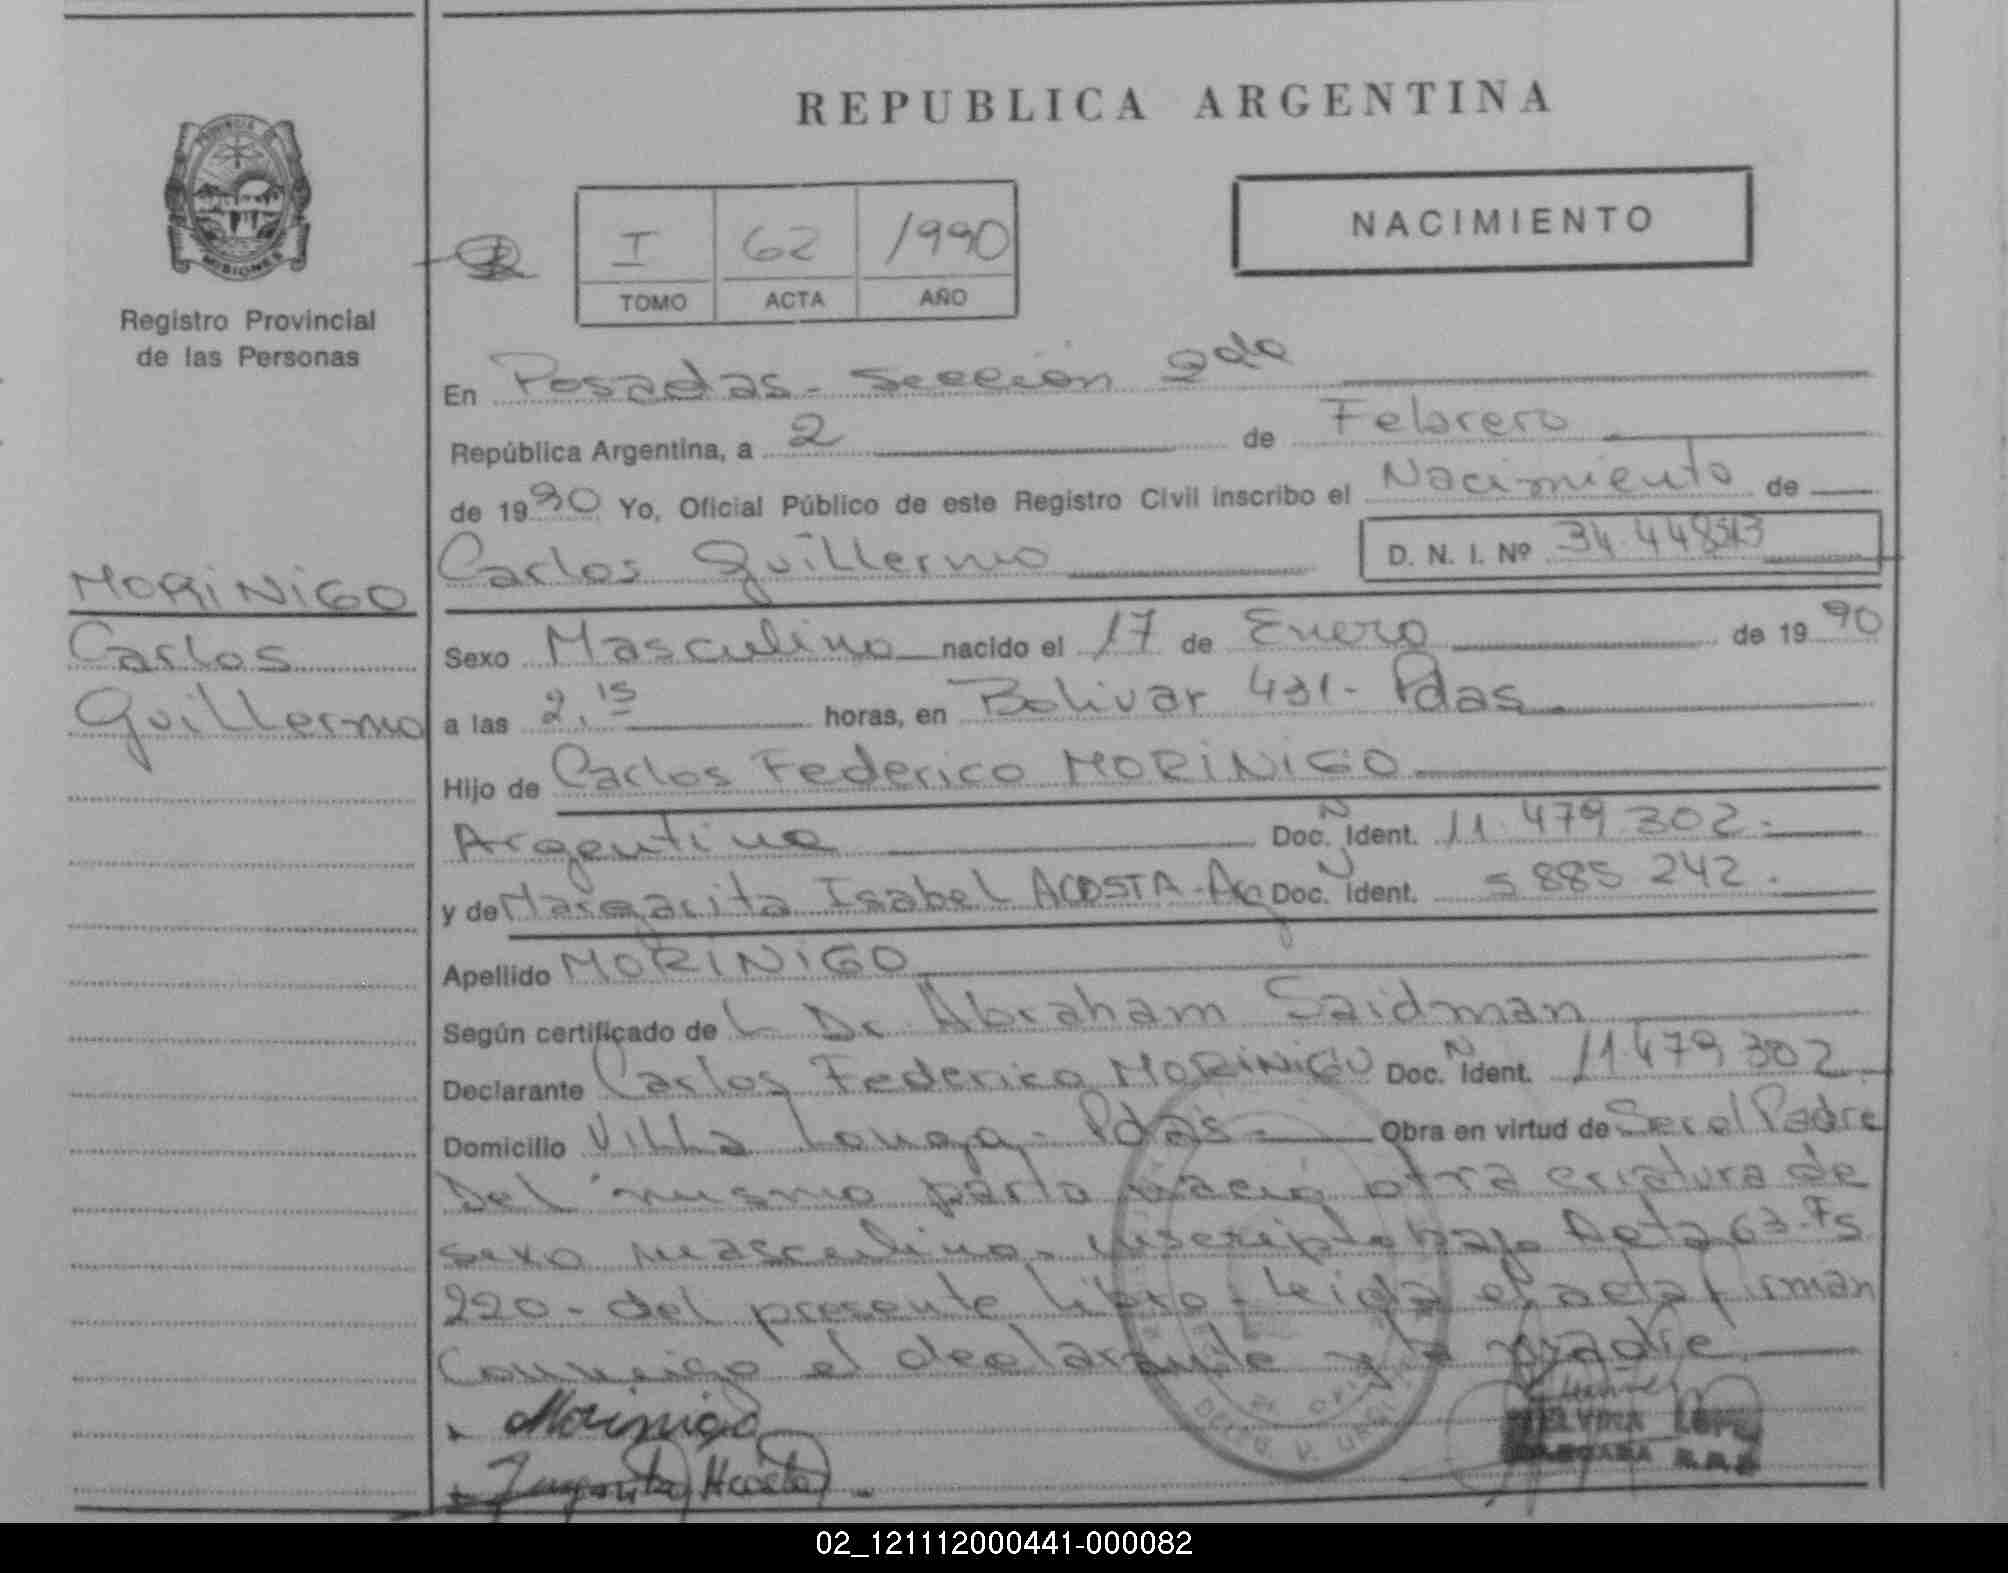 REPUBLICA ARGENTINA
PROVINCIA
MISIONES
Registro Provincial
de las Personas
I 62 1990
TOMO ACTA AÑO
NACIMIENTO
En Posadas - Sección 2da
República Argentina, a 2 de Febrero
de 1990 Yo, Oficial Público de este Registro Civil inscribo el Nacimiento de
Carlos Guillermo D. N. I. Nº 34.448513
MORINIGO
Carlos
Guillermo
Sexo Masculino nacido el 17 de Enero de 1990
a las 2.15 horas, en Bolivar 431 - Pdas
Hijo de Carlos Federico MORINIGO
Argentino Doc. N Ident. 11.479.302.-
y de Margarita Isabel ACOSTA - Arg Doc. N Ident. 5885 242.
Apellido MORINIGO
Según certificado de L Dr Abraham Saidman
Declarante Carlos Federico MORINIGO Doc. N Ident. 11.479.302
Domicilio Villa Longa - Pdas - Obra en virtud de Ser el Padre
Del mismo parto nació otra criatura de
sexo masculino. inscripto bajo Acta 63-Fs
220 - del presente libro - Leida el acta firman
conmigo el declarante y la madre
Morinigo
Acosta
02_121112000441-000082